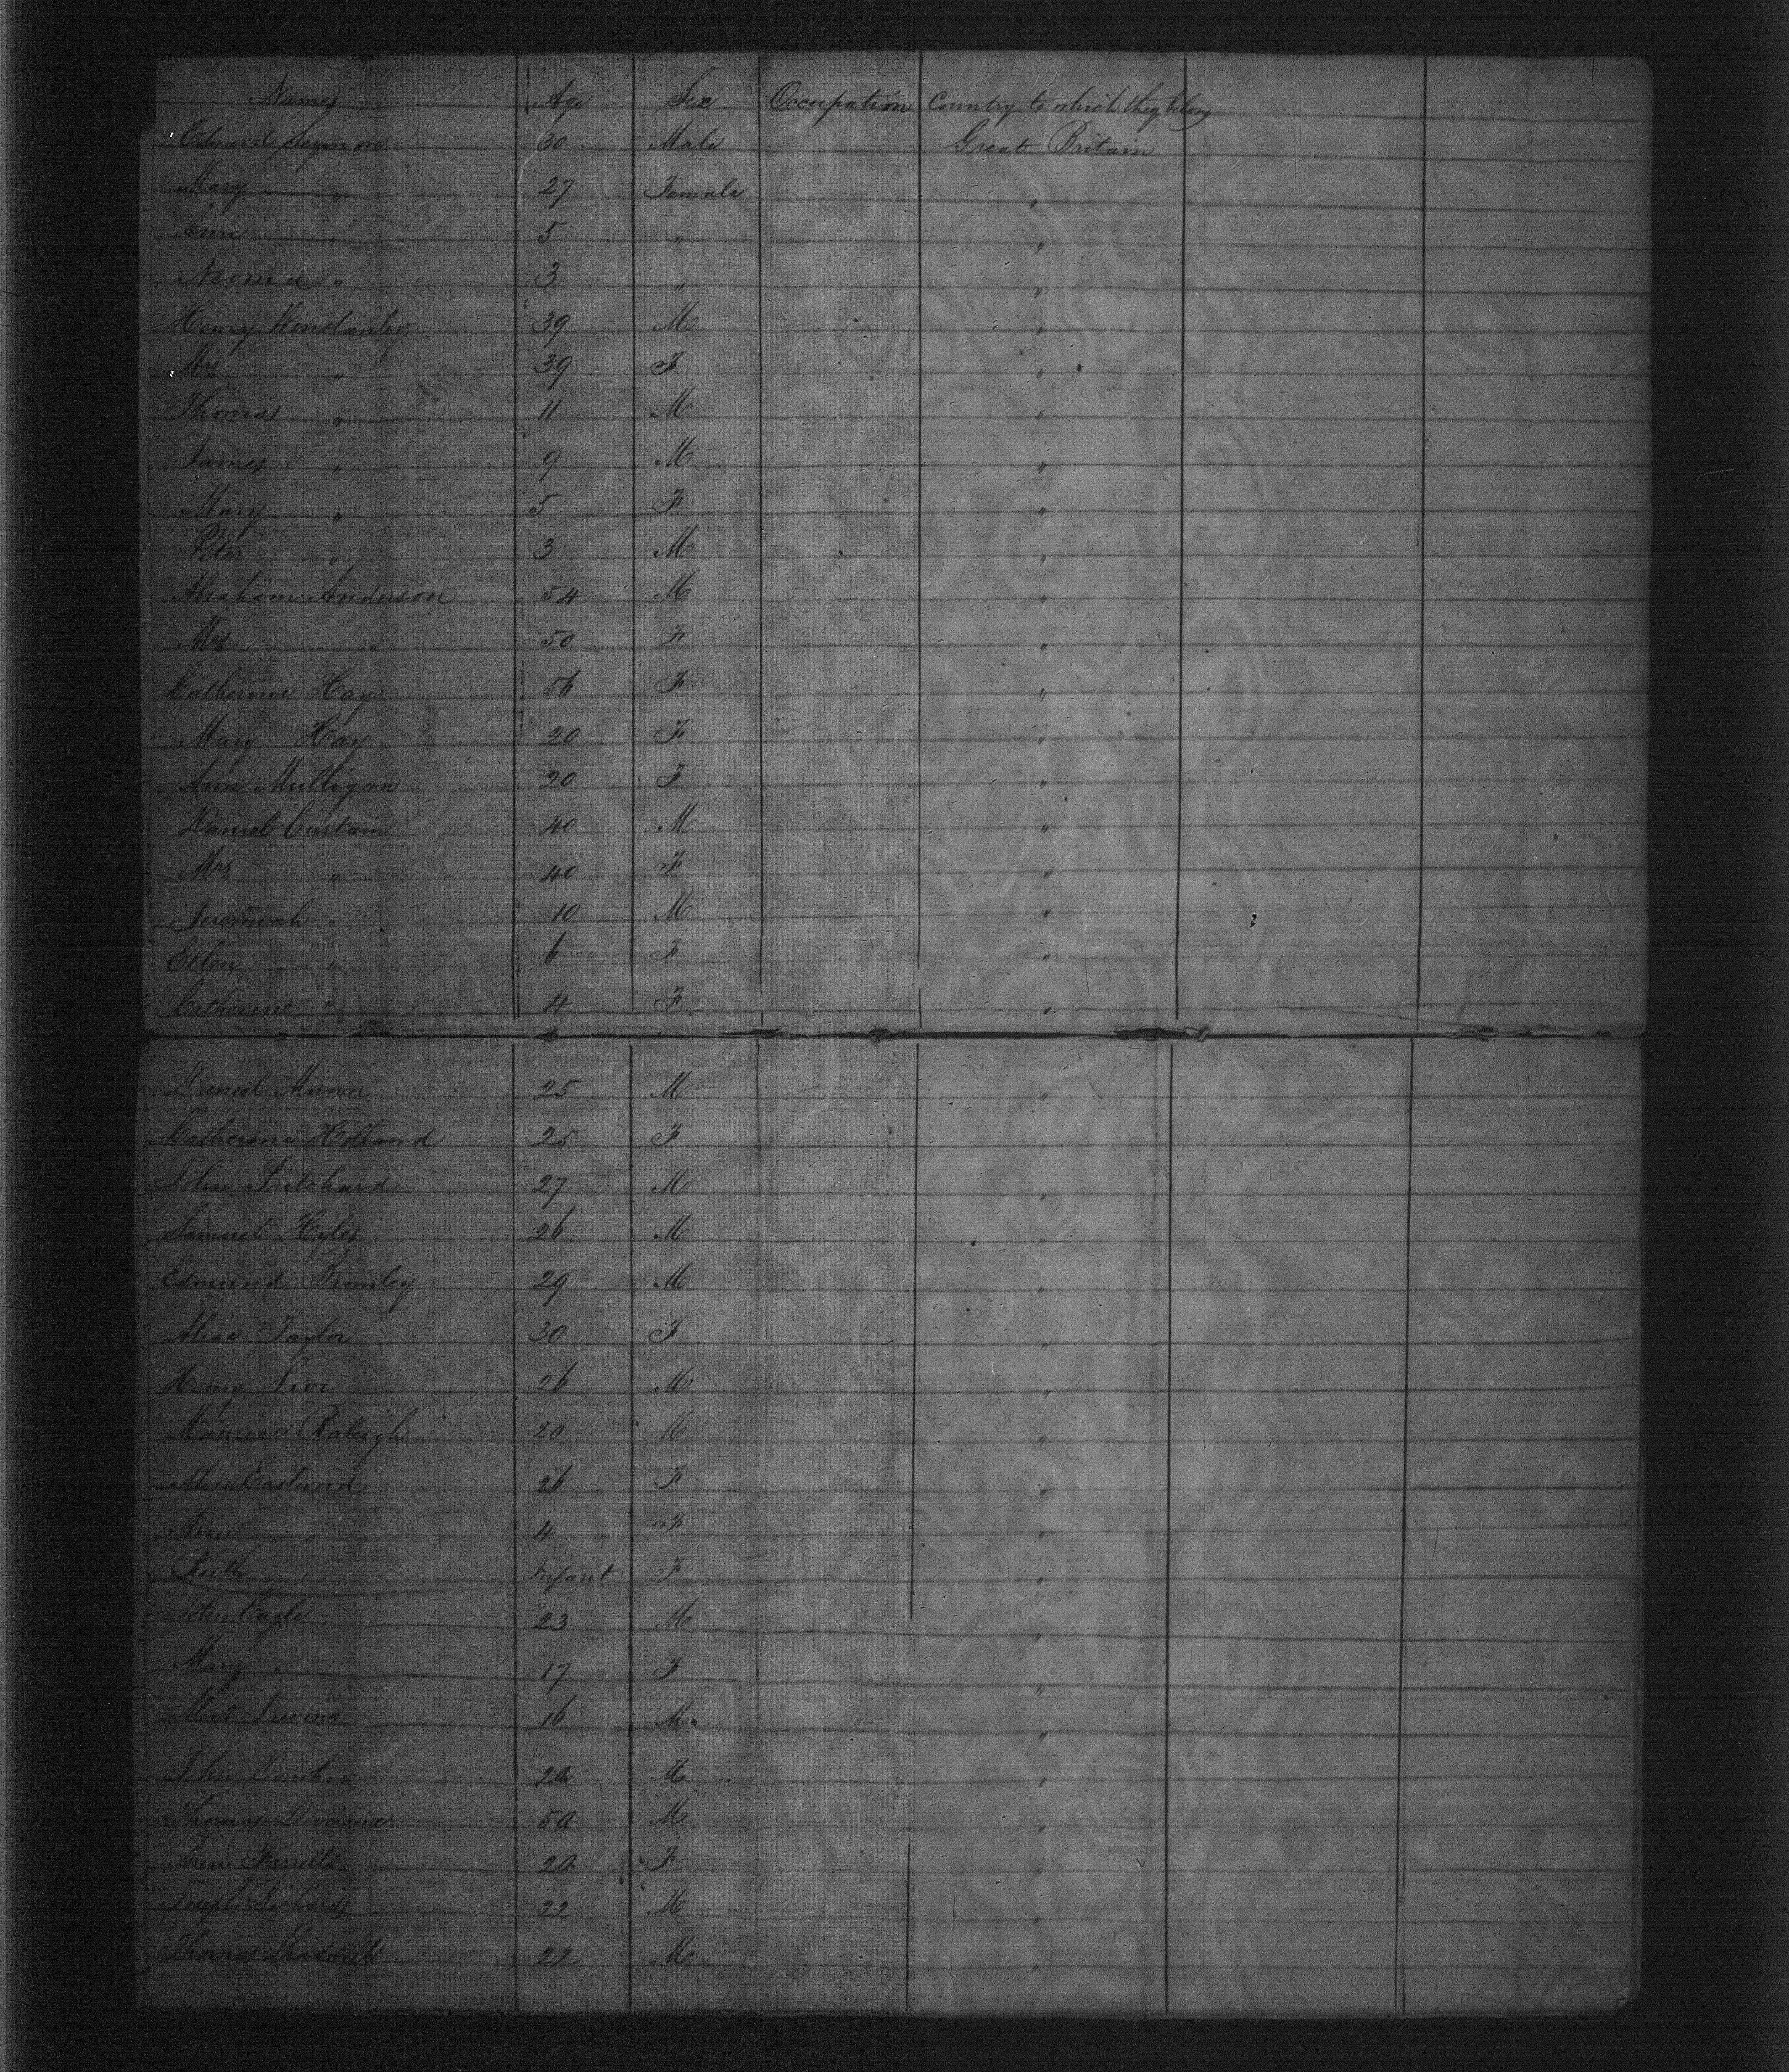 Names Age Sex Occupation Country to which they belong
Edward Seymore 30 Male Great Britain
Mary " 27 Female "
Ann " 5 " "
Neoma " 3 " "
Henry Winstanley 39 M "
Mrs " 39 F "
Thomas " 11 M "
James " 9 M "
Mary " 5 F "
Peter " 3 M "
Abraham Anderson 54 M "
Mrs " 50 F "
Catherine Hay 56 F "
Mary Hay 20 F "
Ann Mulligan 20 F "
Daniel Curtain 40 M "
Mrs " 40 F "
Jeremiah " 10 M "
Ellen " 6 F "
Catherine " 4 F "
Daniel Munn 25 M "
Catherine Holland 25 F "
John Pritchard 27 M "
Samuel Hyles 26 M "
Edmund Bromley 29 M "
Alice Taylor 30 F "
Henry Levi 26 M "
Maurice Raleigh 20 M "
Alice Eastwood 26 F "
Ann " 4 F "
Ruth " Infant F "
John Eagle 23 M "
Mary " 17 F "
Irvine 16 M "
John M "
Thomas Devereux 50 M "
Ann Farrell 20 F "
Joseph Richards 22 M "
Thomas Shadwell 22 M "